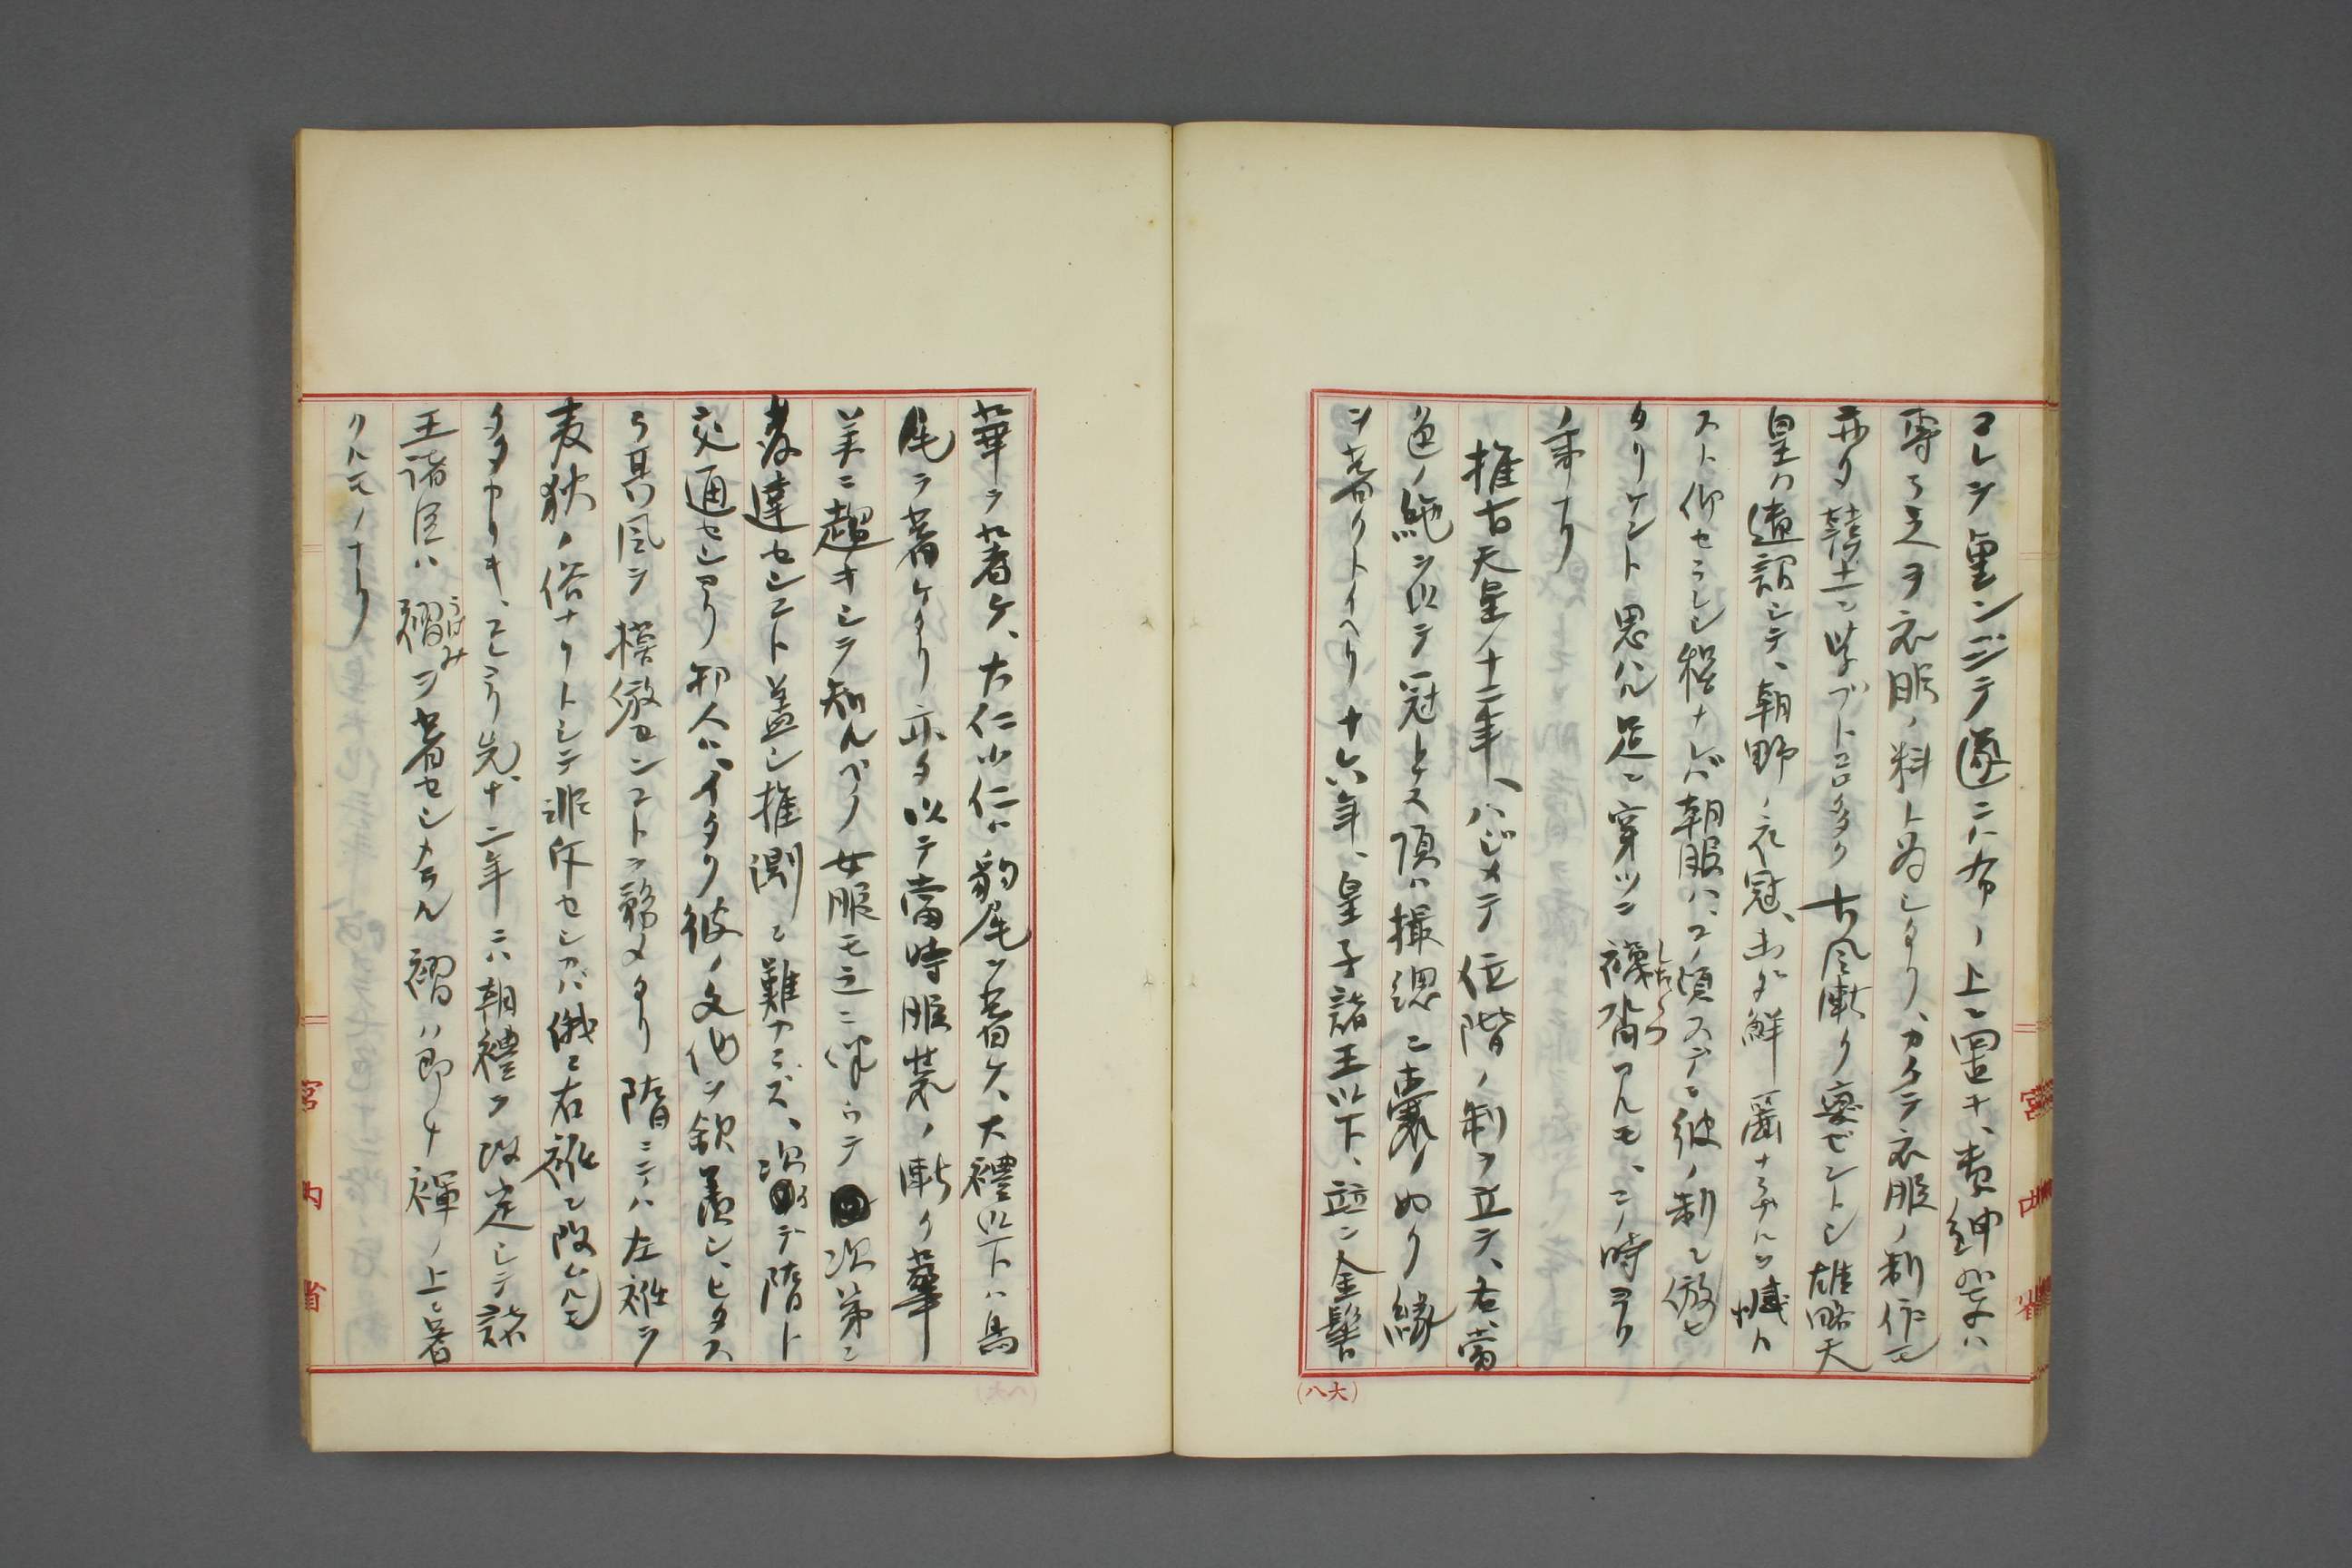 コレヲ重ンジテ遂ニ布ノ上ニ置キ、貴紳ノ
専ラ之ヲ衣服ノ料ト為シタリ、カクテ衣服ノ制作モ
亦タ韓土ニ学ブトコロ多ク古風漸ク変ゼントシ雄略天
皇ハ遺詔シテ、朝野ノ衣冠、未ダ鮮麗ナラザルヲ憾ト
スト仰セラレシ程ナレバ朝服ハ、コノ頃スデニ彼ノ制ニ倣ヒ
タリケント思ハル足ニ穿ツニ襪沓アルモ、コノ時ヨリ
ノ事ナリ
推古天皇ノ十二年、ハジメテ位階ノ制ヲ立テ、各、当
色ノ絁ヲ以テ冠トス頂ハ撮總ニ嚢ノ如ク縁
ヲ著クトイヘリ十六年、皇子諸王以下、並ニ金髻
華ヲ著ケ、大仁小仁ハ豹尾ヲ著ケ、大禮以下ハ鳥
尾ヲ著ケタリ亦タ以テ當時服装ノ漸ク華
美ニ趨キシヲ知ルベク女服モ之ニ伴ウテ次第ニ
発達セシコト蓋シ推測ニ難カラズ、次デ隋ト
交通セシヨリ邦人ハ、イタク彼ノ文化ヲ欽羨シ、ヒタス
ラ其ノ風ヲ模倣センコトヲ務メタリ隋ニテハ左衽ヲ
夷狄ノ俗ナリトシテ非斥セシカバ俄ニ右衽ニ改ムルモ
タタカリキ、コレヨリ先、十二年ニハ朝禮ヲ改定シテ諸
王諸臣ハ褶ヲ著セシメラル褶ハ即チ褌ノ上ニ著
クルモノナリ
うはみ
したうづ
(大八)
宮内省
宮内省